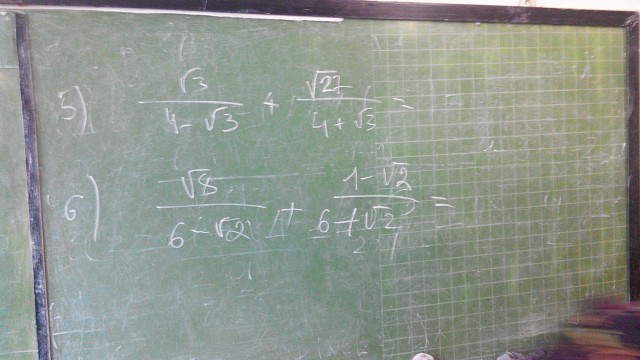 5) √3/(4-√3) + √27/(4+√3) =
6) √8/(6-√2) + (1-√2)/(6+√2) =